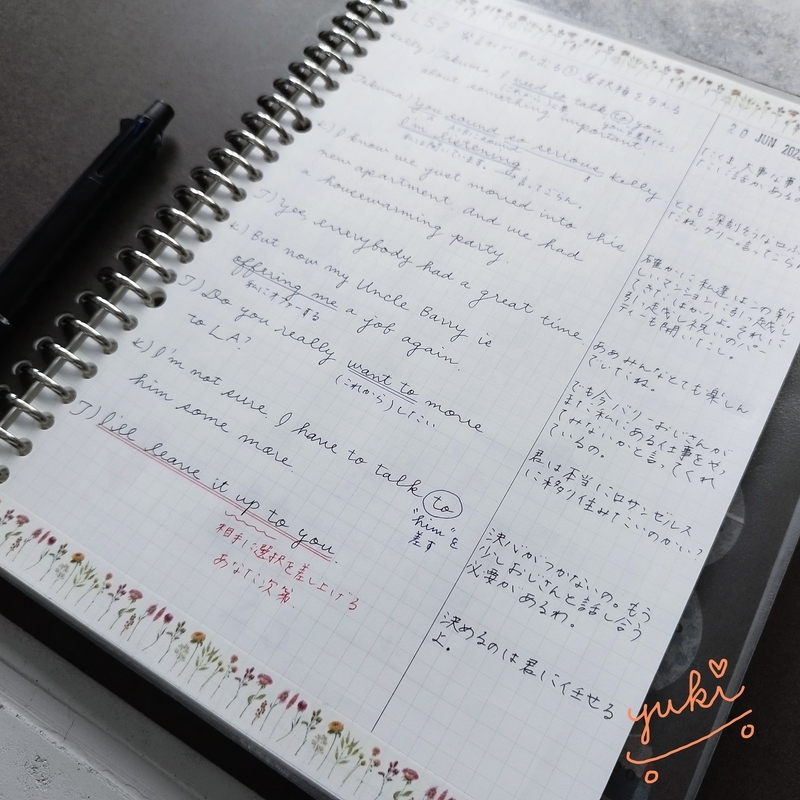 選択権を与える
20 JUN 202
Kelly) Takuma, I need to talk to you
about something important.
Takuma) You sound so serious Kelly
I'm listening
K) I know we just moved into this
new apartment, and we had
a housewarming party.
T) Yes, everybody had a great time.
K) But now my Uncle Barry is
offering me a job again.
私にオファーする
T) Do you really want to move
(これから)したい
to LA?
K) I'm not sure. I have to talk to
"him"を
差す
him some more.
T) I'll leave it up to you.
相手に選択を差し上げる
あなた次第.
確かに私達はこの新
しいマンションに引っ越し
てきたばかりよ。それに
引っ越し祝いのパー
ティーも開いたし。
ああみんなとても楽しん
でいたね。
でも今バリーおじさんが
また私にある仕事をやっ
てみないかと言ってくれ
ているの。
君は本当にロサンゼルス
に移り住みたいのかい?
決心がつかないの。もう
少しおじさんと話し合う
必要があるわ。
決めるのは君に任せる
よ。
yuki